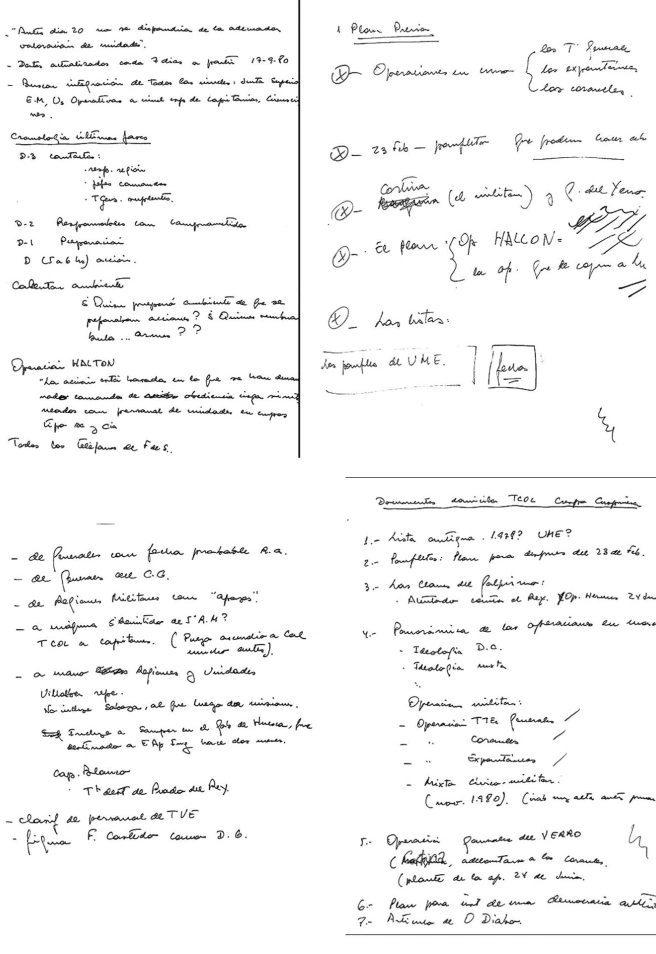 - "Antes dia 20 no se dispondria de la adecuada
valoración de unidades".
- Datos actualizados cada 7 dias a partir 17-9-80
- Buscar integración de todos los niveles: Junta Superio
E.M, Us Operativas a nivel
nes.
Cronología últimas fases
D-3 contactos:
. resp. región
. jefes comandos
. TGens. suplentes.
D-2 Responsables con comprometidos
D-1 Preparación
D (5 a 6 hs) acción.
Calentar ambiente
¿Quien preparó ambiente de que se
preparaban acciones? ¿Quienes nombra
armas??
Operación HALTON
"La acción está basada en lo que se han denomi
nado comandos de obediencia ciega
neados con personal de unidades en grupos
tipo se y cia
Todos los teléfonos de F de S.
1 Plan Previo
X - Operaciones en curso
los T. Generale
los expontáneos
los coroneles.
X - 23 Feb - panfletos que pueden hacer
X - Cortina (el militar) y P. del Yerro.
X - El plan: Op HALCON =
la op. que te cogen a
X - Las listas:
Los panfles de UME.
fechas
- de Generales con fecha probable R.a.
- de Generales del C.G.
- de Regiones Militares con "apoyos".
- a máquina ¿Remitido de I'A.M?
TCOL a capitanes. (Puga ascendio a Col
mucho antes).
- a mano Regiones y Unidades
Villalba repe.
No incluye Saboya, al que luego dan misiones.
Incluye a Samper en el Gob de Huesca, fue
destinado a EAp Ing hace dos meses.
Cap. Blanco
. Tt dest de Prado del Rey.
- clasif de personal de TVE
- figura F. Castedo como D. G.
Documentos domicilio TCOL Crespo Cuspinera
1.- Lista antigua. 1.978? UME?
2.- Panfletos: Plan para despues del 23 de Feb.
3.- Las claves del golpismo:
. Atentado contra el Rey. Op. Hermes 24 Jun
4.- Panorámica de las operaciones en marc
- Ideología D.C.
. Ideología mixta
Operacion militar:
- Operación TTEs Generales
- " Coroneles
- " Expontáneos
- Mixta civico-militar.
(nov. 1.980).
5.- Operación generales del YERRO
( adelantarse a los coroneles.
(plante de la op. 24 de Junio.
6.- Plan para inst de una democracia autén
7.- Articulo de O Diabo.